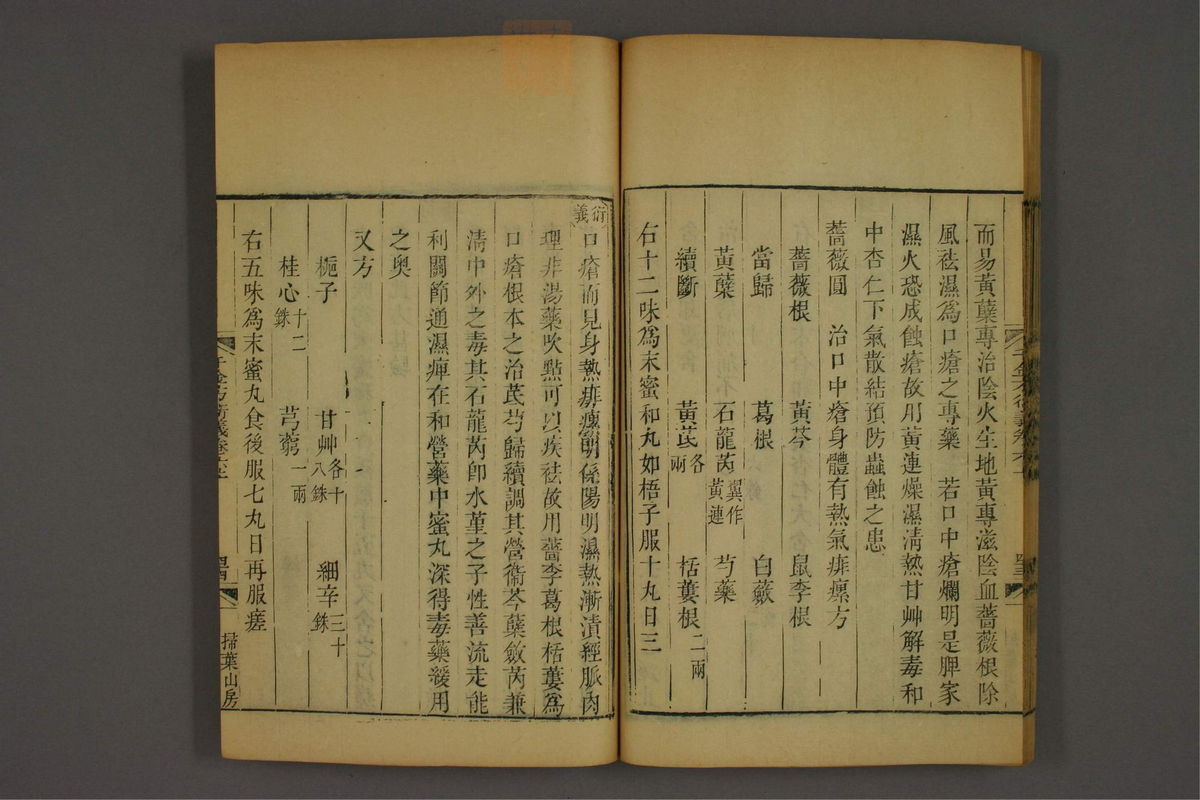 而易黃蘗專治陰火生地黃專滋陰血薔薇根除
風祛濕爲口瘡之專藥　若口中瘡爛明是脾家
濕火恐成蝕瘡故用黃連燥濕清熱甘艸解毒和
中杏仁下氣散結預防蟲蝕之患
薔薇圓　治口中瘡身體有熱氣痱瘰方
薔薇根　黃芩　鼠李根
當歸　葛根　白蘞
黃蘗　石龍芮翼作黃連　芍藥
續斷　黃芪各兩　栝蔞根二兩
右十二味爲末蜜和丸如梧子服十丸日三
衍義
口瘡而見身熱痱瘰明係陽明濕熱漸漬經脈肉
理非湯藥吹㸃可以疾祛故用薔李葛根栝蔞爲
口瘡根本之治芪芍歸續調其營衞芩蘗斂芮兼
清中外之毒其石龍芮卽水堇之子性善流走能
利關節通濕痺在和營藥中蜜丸深得毒藥緩用
之奥
又方
梔子　甘艸各十八銖　細辛三十銖
桂心十二銖　芎藭一兩
右五味爲末蜜丸食後服七丸日再服瘥
千金方衍義卷六上
掃葉山房